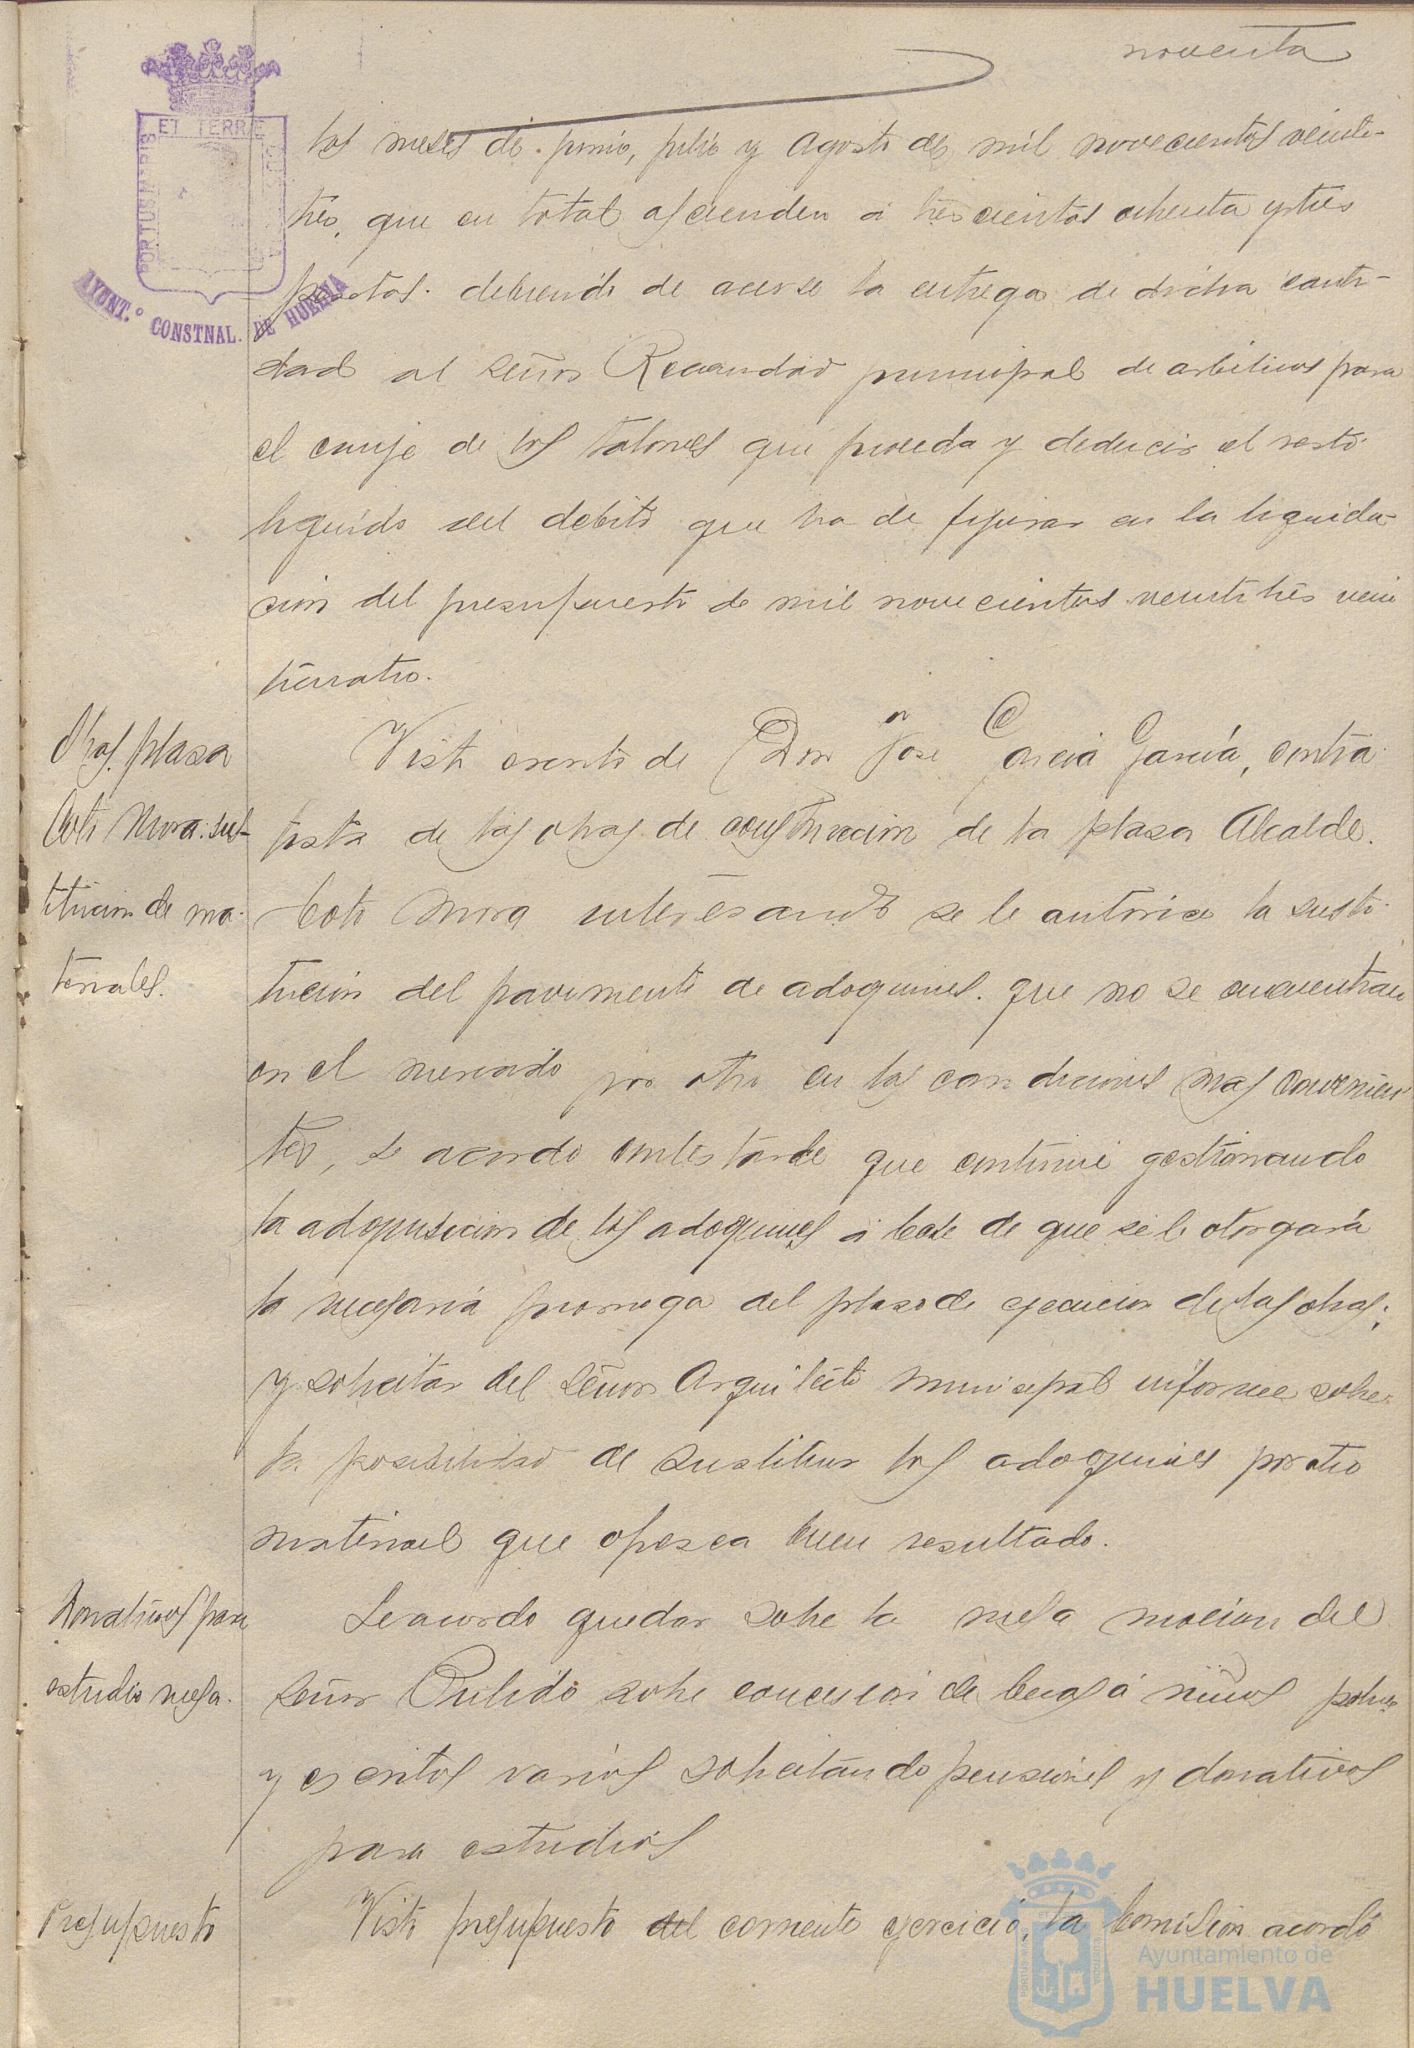 noventa
ET TERRÆ
PORTUS MARIS
AYUNT.º CONSTNAL. DE HUELVA
los meses de junio, julio y Agosto de mil novecientos veinti-
trés, que en total ascienden a trescientos ochenta y tres
pesetas. debiendo de acerse la entrega de dicha canti-
dad al señor Recaudador principal de arbitrios para
el canje de los talones que proceda y deducir el resto
liquido del debito que ha de figurar en la liquida-
cion del presupuesto de mil novecientos veintitrés vein
ticuatro.
Obras plaza
Coto Mora: sus-
titucion de ma-
teriales.
Visto escrito de Don José Garcia García, contra-
tista de las obras de construccion de la plaza Alcalde
Coto Mora interesando se le autorice la susti-
tucion del pavimento de adoquines. que no se encuentran
en el mercado por otro en las condiciones mas convenien-
tes, se acordo contestarle que continue gestionando
la adquisicion de los adoquines a base de que se le otorgará
la necesaria prorroga del plazo de ejecucion de las obras;
y solicitar del señor Arquitecto Municipal informe sobre
la posibilidad de sustituir los adoquines por otro
material que ofrezca buen resultado.
Donativos para
estudio mesa.
Se acordo quedar sobre la mesa mocion del
señor Pulido sobre concesion de becas á niños pobres
y escritos varios solicitando pensiones y donativos
para estudios
Presupuesto
Visto presupuesto del corriente ejercicio, la Comision acordó
Ayuntamiento de
HUELVA